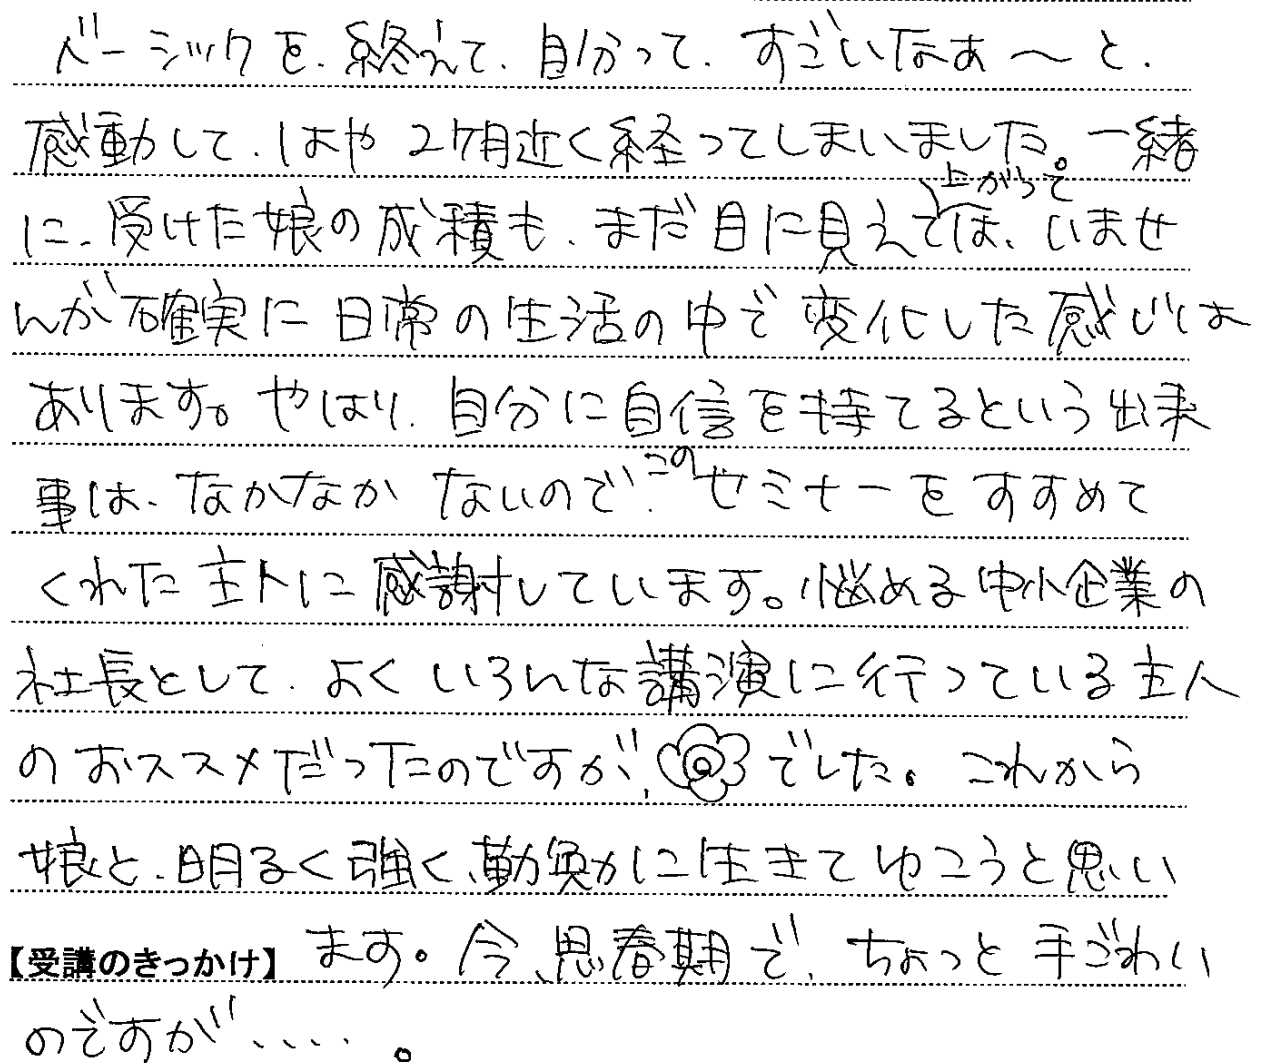 ベーシックを、終えて、自分って、すごいなぁ〜と、
感動して、はや2ヶ月近く経ってしまいました。一緒
に、受けた娘の成積も、まだ目に見えて上がっては、いませ
んが確実に日常の生活の中で変化した感じは
あります。やはり、自分に自信を持てるという出来
事は、なかなかないので、このセミナーをすすめて
くれた主人に感謝しています。悩める中小企業の
社長として、よくいろんな講演に行っている主人
のおススメだったのですが、でした。これから
娘と、明るく強く、勇気に生きてゆこうと思い
【受講のきっかけ】ます。今、思春期で、ちょっと手ごわい
のですが‥‥。